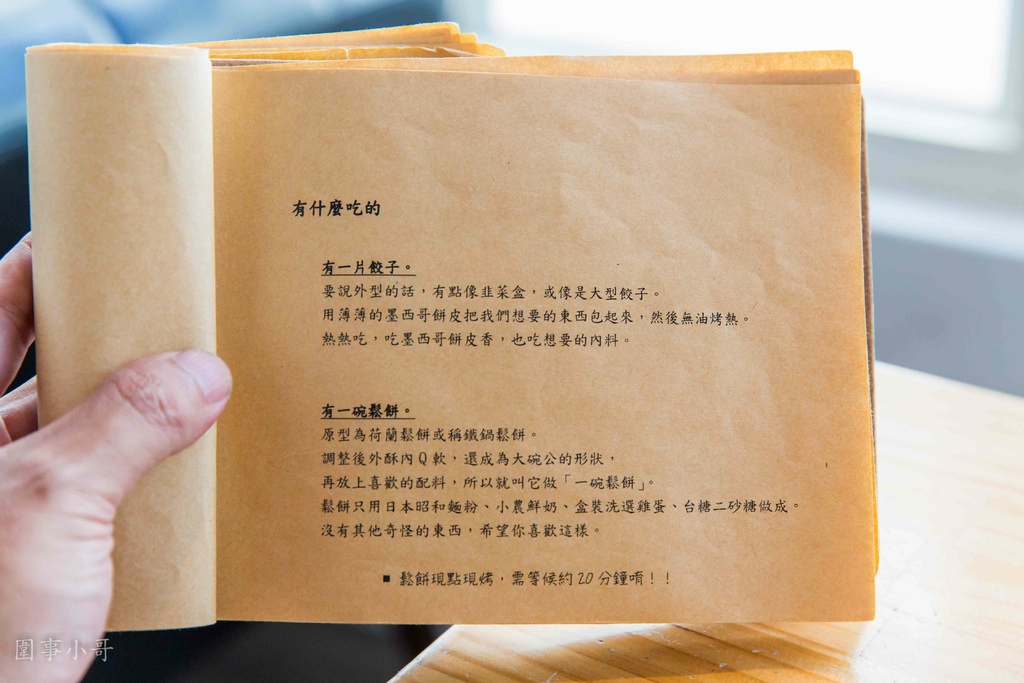 有什麼吃的
有一片餃子。
要說外型的話，有點像韭菜盒，或像是大型餃子。
用薄薄的墨西哥餅皮把我們想要的東西包起來，然後無油烤熱。
熱熱吃，吃墨西哥餅皮香，也吃想要的內料。
有一碗鬆餅。
原型為荷蘭鬆餅或稱鐵鍋鬆餅。
調整後外酥內Q軟，還成為大碗公的形狀，
再放上喜歡的配料，所以就叫它做「一碗鬆餅」。
鬆餅只用日本昭和麵粉、小農鮮奶、盒裝洗選雞蛋、台糖二砂糖做成。
沒有其他奇怪的東西，希望你喜歡這樣。
■ 鬆餅現點現烤，需等候約20分鐘唷！！
圍事小哥